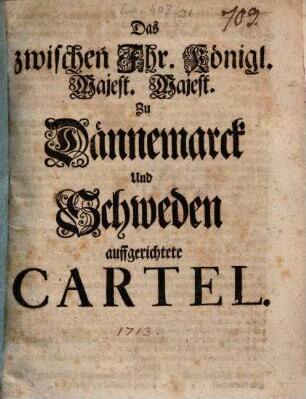 709.
Das
zwischen Ihr. Königl.
Majest. Majest.
Zu
Dännemarck
Und
Schweden
auffgerichtete
CARTEL.
1713.